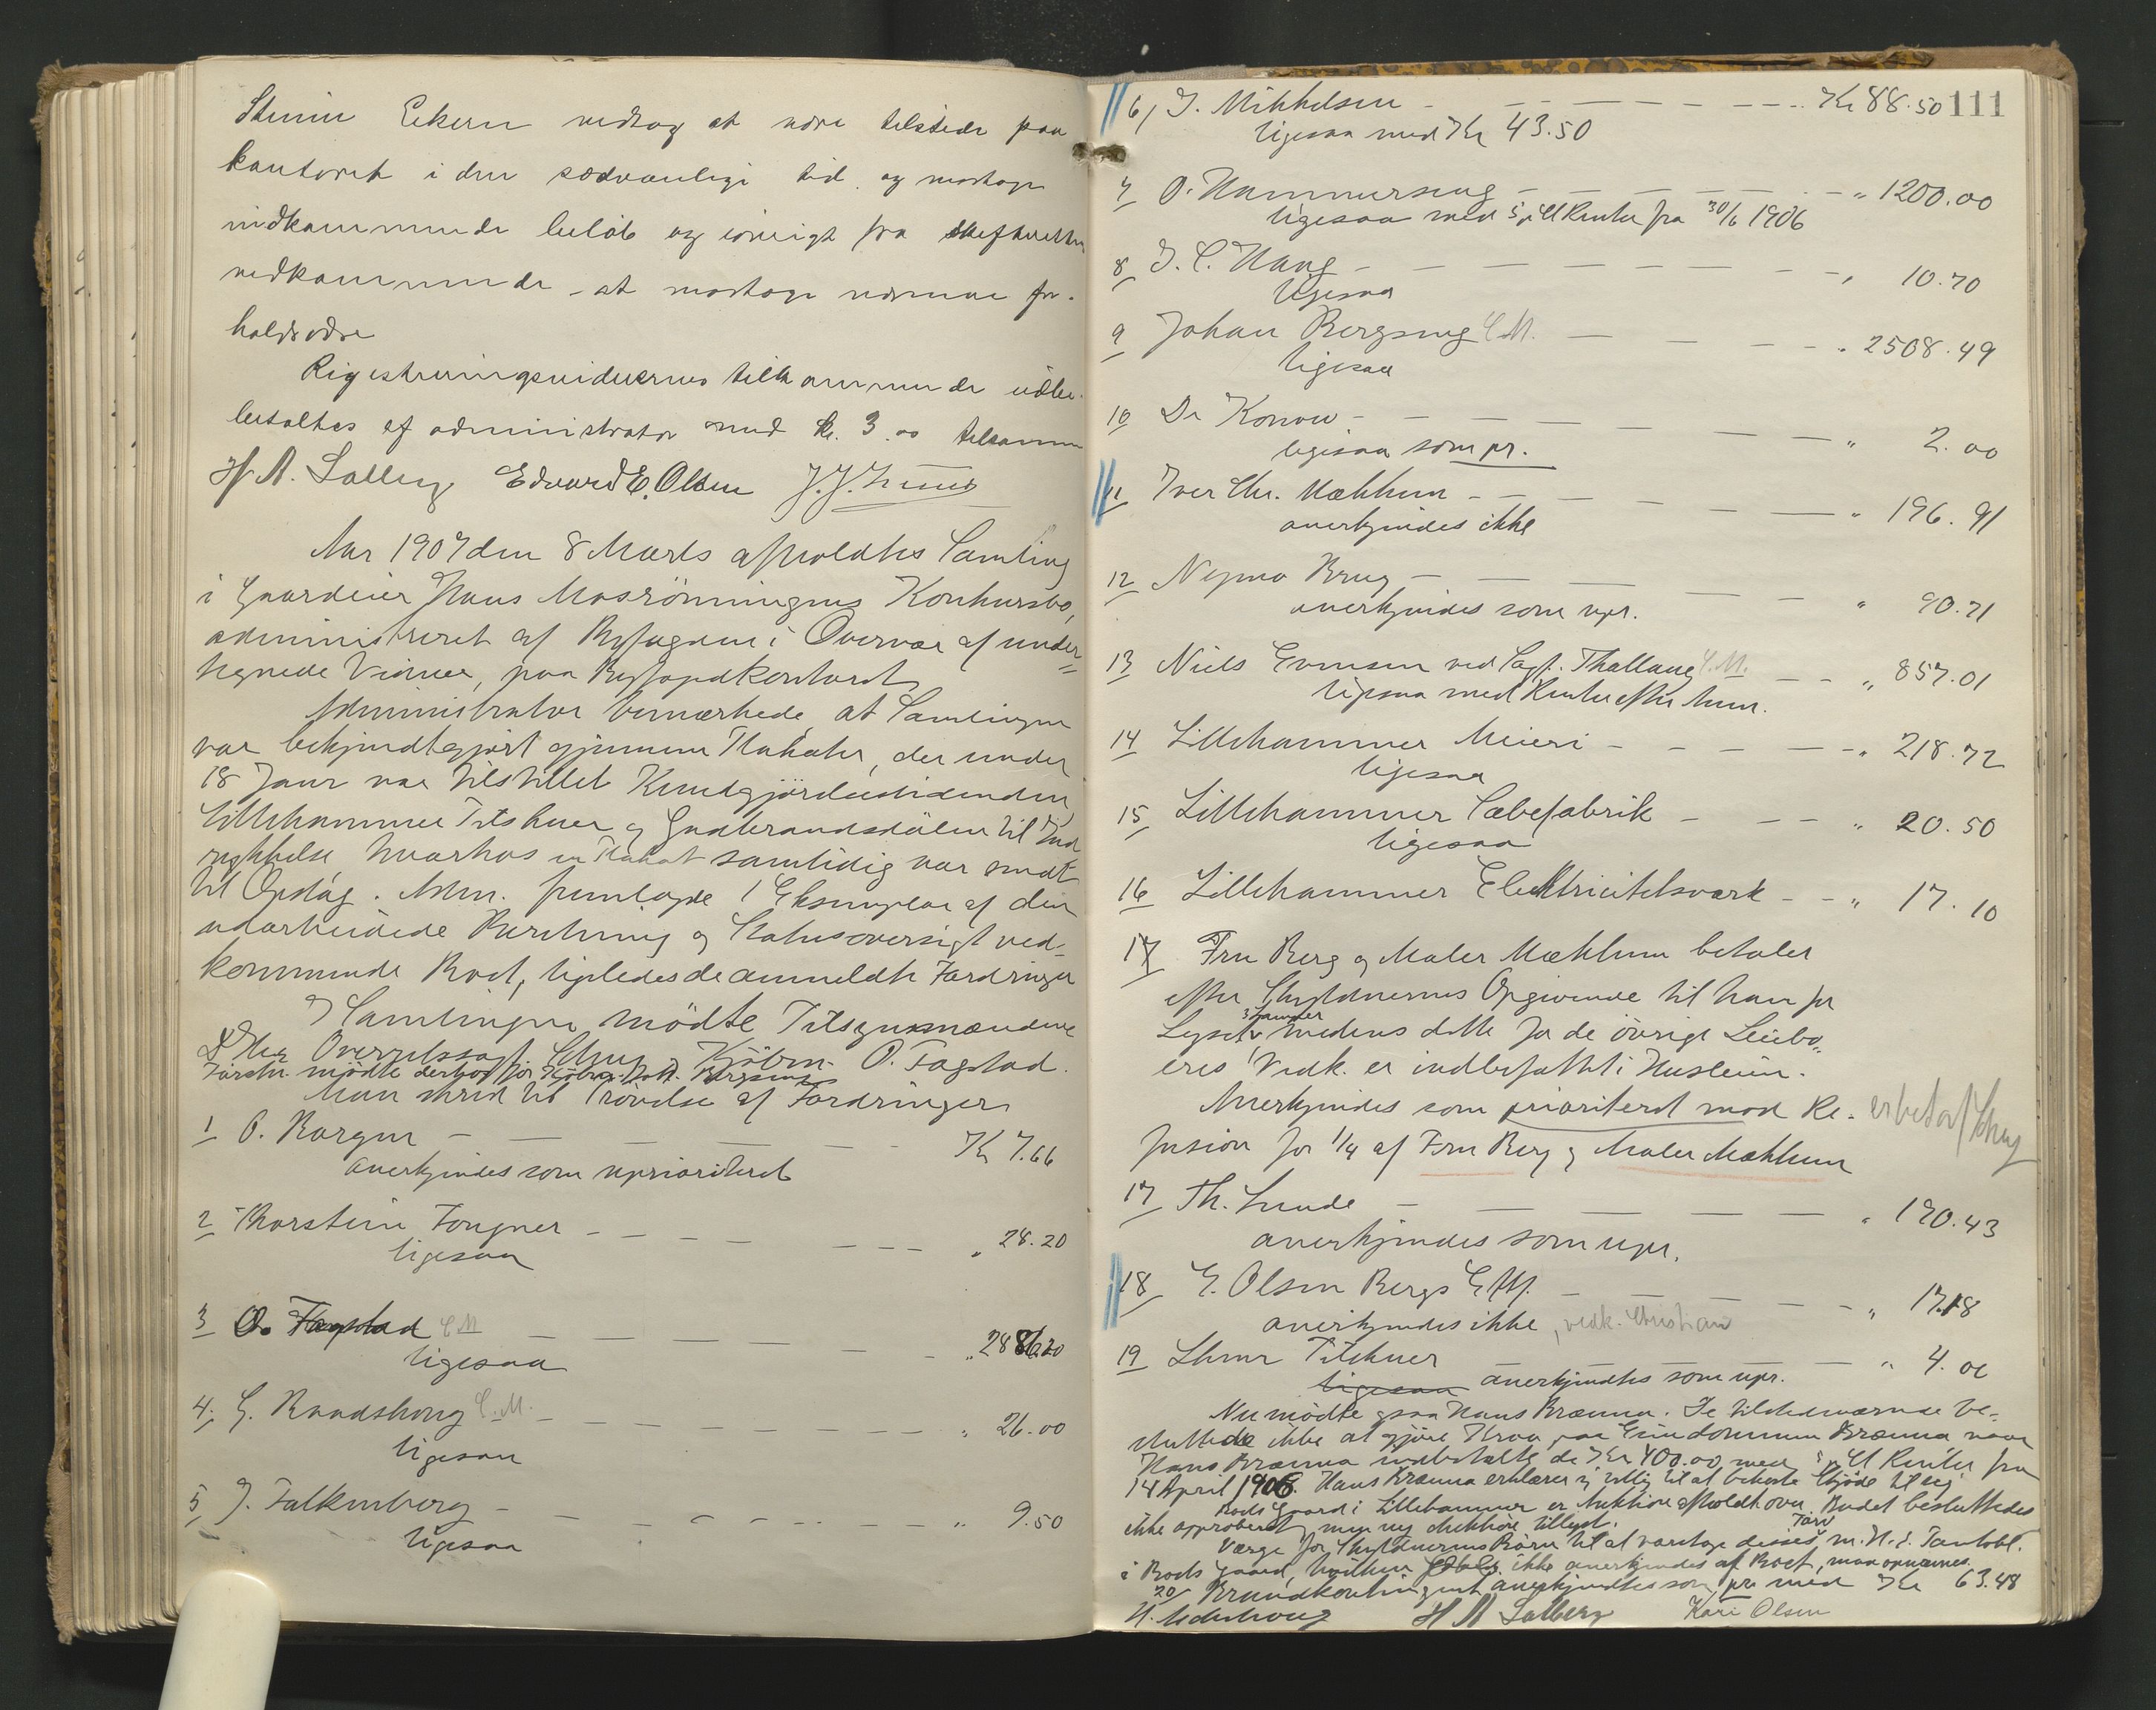 Eekern vedtog at være tilstede paa
kontoret i den sædvanlige tid og modtage
indkommende beløb og iøvrigt fra skifterettens
vedkommende at modtage nærmere for-
holdsordre
Registreringsvidnernes tilkommende
betaltes af administrator med Kr. 3.00 tilsammen
H. A. Salberg Edvard E. Olsen
Aar 1907 den 8 Marts afholdtes Samling
i Gaardeier Hans Mosrönningens Konkursbo,
administreret af Byfogden i Overvær af under=
tegnede Vidner, paa Byfogedkontoret
Administrator bemærkede at Samlingen
var bekjendtgjort gjennem Plakater, der under
18 Janr var tilstillet Kundgjørelsestidenden
Lillehammer Tilskuer og Gudbrandsdölen til Ind
rykkelse hvorhos en Plakat samtidig var sendt
til Opslag. Adm. fremlagde 1 Exemplar af den
udarbeidede Beretning og Statusoversigt ved-
kommende Boet, ligeledes de anmeldte Fordringer
I Samlingen mödte Tilsynsmændene
Overretssagf. Schug og Kjöbm. O. Fagstad.
mödte derhos for
Man skred til Prövelse af Fordringer
1 O. Borgen - - - - Kr 7.66
anerkjendes som uprioriteret
2 Thorstein Fougner - - - - - - - " 28.20
ligesaa
3 O. Fagstad C M - - - - - "
ligesaa
4. G. Raadshoug C. M. - - - - - - " 26.00
ligesaa
5 J. Falkenberg - - - - - - " 9.50
ligesaa
111
6, J. Mikkelsen - - - - - - - Kr 88.50
ligesaa med Kr 43.50
7 O. Hammerseng - - - - - " 1200.00
ligesaa med 5 pCt Renter fra 30/6 1906
8 J. C. Haug - - - - - - - " 10.70
ligesaa
9 Johan Bergseng C M. - - - - " 2508.49
ligesaa
10 Dr Konow - - - - - - " 2.00
ligesaa som pr.
11 Iver Chr. Mæhlum - - - - - " 196.91
anerkjendes ikke
12 Nymo Brug - - - - - " 90.71
anerkjendes som upr.
13 Niels Evensen ved Sagf. Thallaug C. M. - - " 857.01
ligesaa med Renter efter
14 Lillehammer Meieri - - - - - " 218.72
ligesaa
15 Lillehammer Sæbefabrik - - - " 20.50
ligesaa
16 Lillehammer Elektricitetsværk - - " 17.10
17 Fru Berg og Maler Mæhlum betaler
efter Skyldnernes Opgivende til ham for
Lyset medens dette for de övrige Leiebo-
eres Vedk. er indbefattet i Husleien.
Anerkjendes som prioriteret mod Re-
fusion for 1/4 af Fru Berg og Maler Mæhlum
17 Th. Lunde - - - - - - " 190.43
anerkjendes som upr.
18 E. Olsen Bergs Eftf. - - - - - "
anerkjendes ikke, vedk. Christian
19 Tilskuer - - - - - "
ligesaa anerkjendtes som upr.
Nu mödte ogsaa Hans Brænna. De tilstedeværende be-
sluttede ikke at gjöre Krav paa Eiendommen Brænna naar
Hans Brænna indbetalte de Kr 400.00 med 5 pCt Renter fra
14 April 1906. Hans Brænna erklærer sig villig til at bekoste Skjöde til sig
Boets Gaard i Lillehammer er Auktion afholdt over. Budet besluttedes
ikke approberet, men ny Auktion tillyst.
Værge for Skyldnernes Börn til at varetage disses Tarv m. H. t. Pantobl.
i Boets Gaard, hvilken ikke anerkjendes af Boet, maa opnævnes.
20 Brandkontingent anerkjendtes som pr med Kr 63.48
H A Salberg Kari Olsen